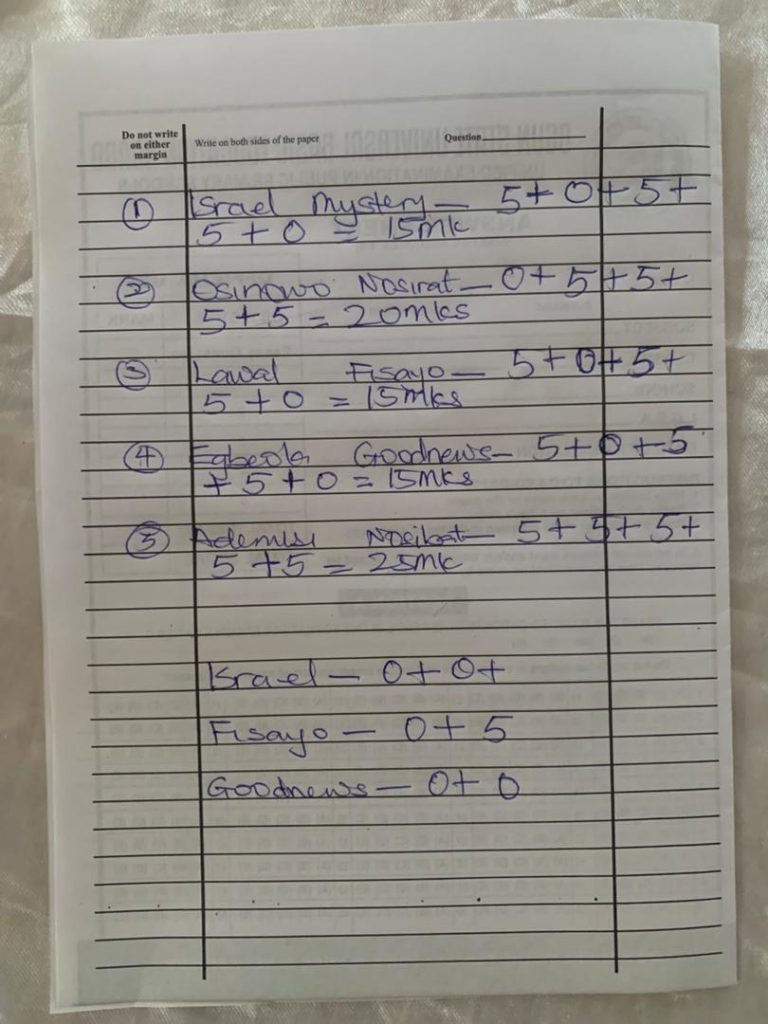 Do not write
on either
margin
Write on both sides of the paper
Question
① Israel Mystery — 5+0+5+
5+0 = 15mk
② Osinowo Nosirat — 0+5+5+
5+5 = 20mks
③ Lawal Fisayo — 5+0+5+
5+0 = 15mks
④ Egbeola Goodnews — 5+0+5
+5+0 = 15mks
⑤ Nosibat — 5+5+5+
5+5 = 25mk
Israel — 0+0+
Fisayo — 0+5
Goodnews — 0+0